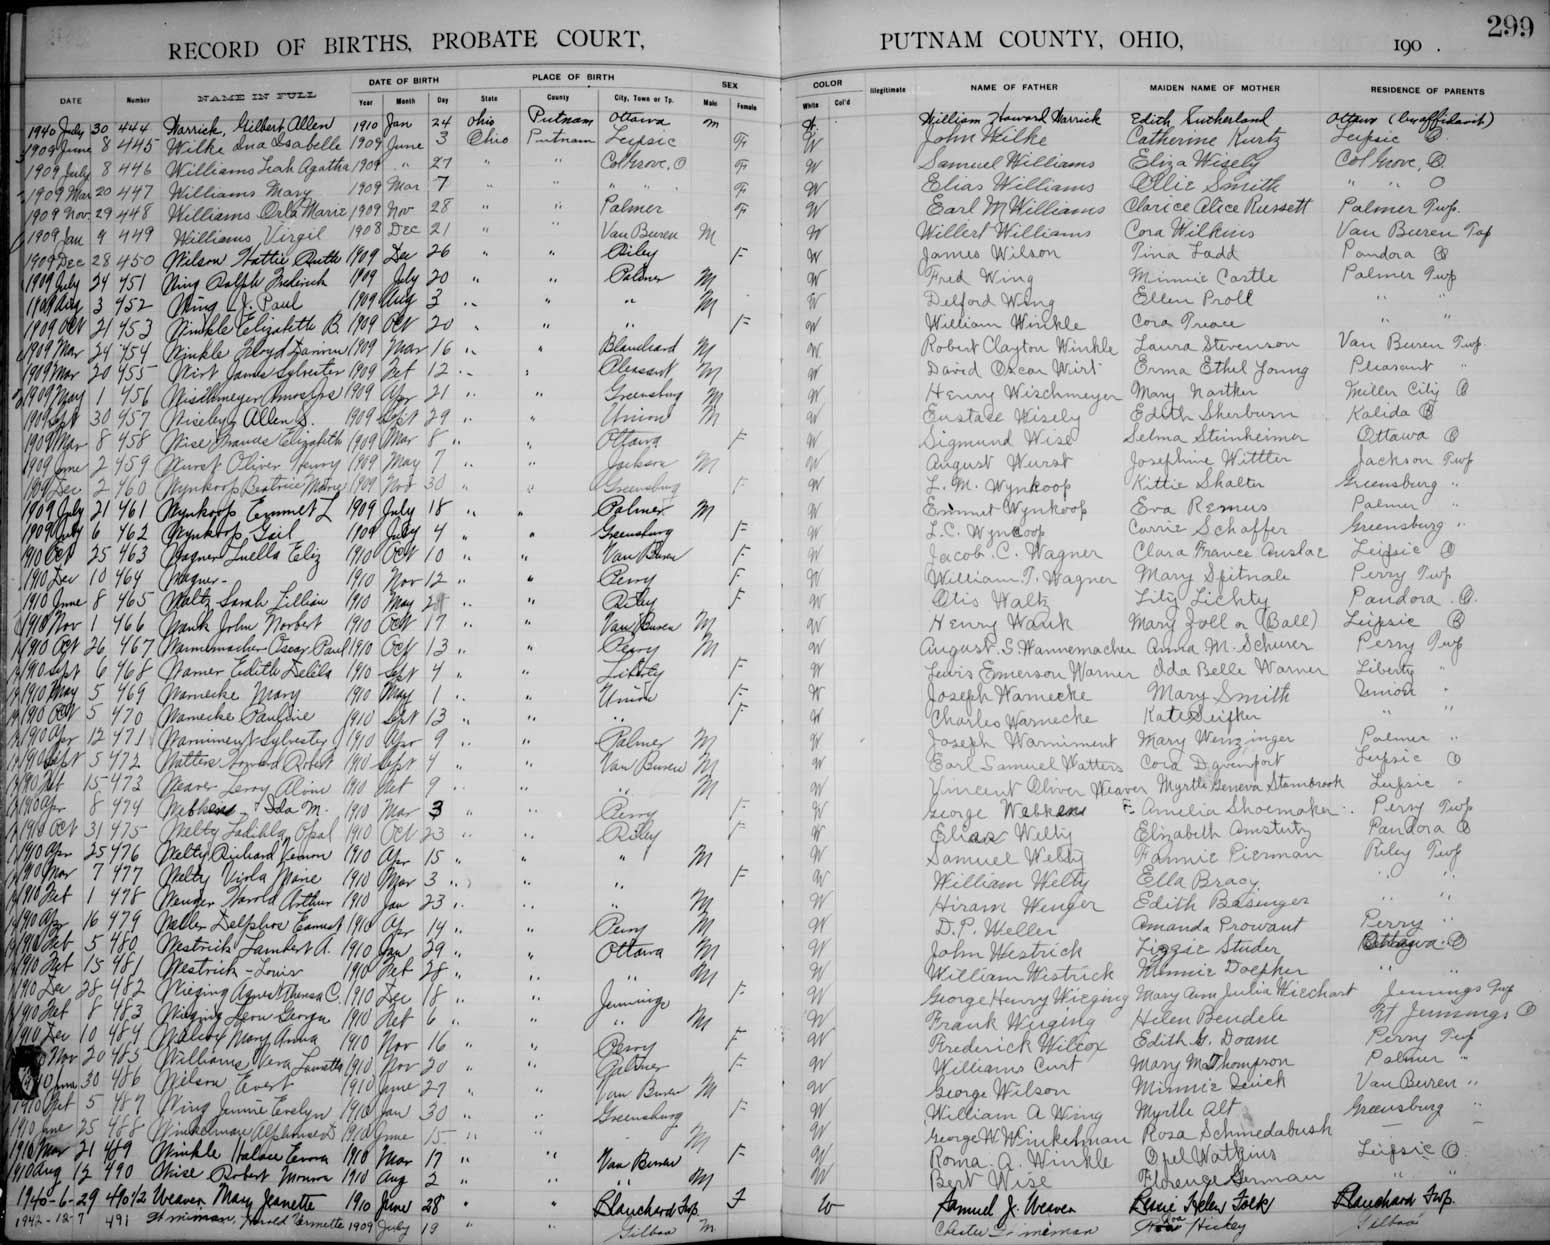 299
RECORD OF BIRTHS, PROBATE COURT, PUTNAM COUNTY, OHIO, 190 .
DATE Number NAME IN FULL DATE OF BIRTH PLACE OF BIRTH SEX COLOR Illegitimate NAME OF FATHER MAIDEN NAME OF MOTHER RESIDENCE OF PARENTS
Year Month Day State County City, Town or Tp. Male Female White Col'd
1940 July 30 444 Warrick, Gilbert Allen 1910 Jan 24 Ohio Putnam Ottawa M W. William Howard Warrick Edith Sutherland Ottawa (by affidavit)
1909 June 8 445 Wilke Ina Isabelle 1909 June 3 Ohio Putnam Leipsic F W John Wilke Catherine Kurtz Leipsic O
1909 July 8 446 Williams Leah Agatha 1909 " 27 " " Col Grove, O F W Samuel Williams Eliza Wisely Col Grove, O
1909 Mar 20 447 Williams Mary 1909 Mar 7 " " " " F W Elias Williams Ollie Smith " " O
1909 Nov. 29 448 Williams Orla Marie 1909 Nov 28 " " Palmer F W Earl M Williams Clarice Alice Russett Palmer Twp.
1909 Jan 9 449 Williams, Virgil 1908 Dec 21 " " Van Buren M W Willert Williams Cora Wilkins Van Buren Twp
1909 Dec 28 450 Wilson Hattie Ruth 1909 Dec 26 " " Riley F W James Wilson Tina Ladd Pandora O
1909 July 24 451 Wing Ralph Frederick 1909 July 20 " " Palmer M W Fred Wing Minnie Castle Palmer Twp
1909 Aug 3 452 Wing J. Paul 1909 Aug 3 " " " M W Delford Wing Ellen Proll " "
1909 Oct 21 453 Winkle Elizabeth B 1909 Oct 20 " " " F W William Winkle Cora Treace " "
1909 Mar 24 454 Winkle Floyd 1909 Mar 16 " " Blanchard M W Robert Clayton Winkle Laura Stevenson Van Buren Twp.
1909 Mar 20 455 Wirt James Sylvester 1909 Feb 12 " " Pleasant M W David Oscar Wirt Erma Ethel Young Pleasant "
1909 May 1 456 Wischmeyer 1909 Apr 21 " " Greensburg M W Henry Wischmeyer Mary Miller City O
1909 Sept 30 457 Wisely Allen S. 1909 Sept 29 " " Union M W Eustace Wisely Edith Sherburn Kalida O
1909 Mar 8 458 Wise Elizabeth 1909 Mar 8 " " Ottawa F W Sigmund Wise Selma Steinheimer Ottawa O
1909 June 2 459 Wurst Oliver Henry 1909 May 7 " " Jackson M W August Wurst Josephine Wittler Jackson Twp
1909 Dec 2 460 Wynkoop Beatrice 1909 Nov 30 " " Greensburg F W L. M. Wynkoop Kittie Shalter Greensburg "
1909 July 21 461 Wynkoop Emmet L 1909 July 18 " " Palmer M W Emmet Wynkoop Eva Remus Palmer "
1909 July 6 462 Wynkoop Gail 1909 July 4 " " Greensburg F W L. C. Wynkoop Carrie Schaffer Greensburg "
1910 Oct 25 463 Wagner Luella Eliz 1910 Oct 10 " " Van Buren F W Jacob C. Wagner Clara France Leipsic O
1910 Dec 10 464 Wagner - 1910 Nov 12 " " Perry F W William T. Wagner Mary Spitnale Perry Twp
1910 June 8 465 Waltz Sarah Lillian 1910 May " " Riley F W Otis Waltz Lily Lichty Pandora. O.
1910 Nov 1 466 Wank John Norbert 1910 Oct 17 " " Van Buren M W Henry Wank Mary Joll or (Ball) Leipsic O
1910 Oct 26 467 Wannemacher Oscar Paul 1910 Oct 13 " " Perry M W August. S. Wannemacher Anna M. Schurer Perry Twp
1910 Sept 6 468 Warner Edith Delila 1910 Sept 4 " " Liberty F W Lewis Emerson Warner Ida Belle Warner Liberty "
1910 May 5 469 Warnecke Mary 1910 May 1 " " Union F W Joseph Warnecke Mary Smith Union "
1910 Oct 5 470 Warnecke Pauline 1910 Sept 13 " " " F W Charles Warnecke Kate Seifker " "
1910 Apr 12 471 Warniment Sylvester 1910 Apr 9 " " Palmer M W Joseph Warniment Mary Wenzinger Palmer "
1910 Sept 5 472 Watters Howard Robert 1910 Sept 4 " " Van Buren M W Earl Samuel Watters Cora Davenport Leipsic O
1910 Feb 15 473 Weaver Leroy Alvin 1910 Feb 9 " " " M W Vincent Oliver Weaver Myrtle Geneva Stambrook Leipsic "
1910 Apr 8 474 Webkens Ida M. 1910 Mar 3 " " Perry F W George Webkens F. Amelia Shoemaker Perry Twp
1910 Oct 31 475 Welty Opal 1910 Oct 23 " " Riley F W Elias Welty Elizabeth Amstutz Pandora O
1910 Apr 25 476 Welty Richard Vernon 1910 Apr 15 " " " M W Samuel Welty Fannie Pierman Riley Twp
1910 Mar 7 477 Welty Viola Marie 1910 Mar 3 " " " F W William Welty Ella Bracy " "
1910 Feb 1 478 Wenger Harold Arthur 1910 Jan 23 " " " M W Hiram Wenger Edith Basinger " "
1910 Apr 16 479 Weller Delphor Earnest 1910 Apr 14 " " Perry M W D. P. Weller Amanda Prowant Perry "
1910 Feb 5 480 Westrick Lambert A. 1910 Jan 29 " " Ottawa M W John Westrick Lizzie Studer Ottawa O
1910 Feb 15 481 Westrick - Louis 1910 Feb 28 " " " M W William Westrick Minnie Doepker " "
1910 Dec 28 482 Wieging Agnes Theresa C. 1910 Dec 18 " " Jennings F W George Henry Wieging Mary Ann Julia Wiechart Jennings Twp
1910 Feb 8 483 Wieging Leon George 1910 Feb 6 " " " M W Frank Wieging Helen Bendele Ft Jennings O
1910 Dec 10 484 Wilcox Mary Anna 1910 Nov 16 " " Perry F W Frederick Wilcox Edith G. Doane Perry Twp
Nov 20 485 Williams, Vera 1910 Nov 20 " " Palmer F W Williams Curt Mary M Thompson Palmer "
1910 June 30 486 Wilson Evert 1910 June 27 " " Van Buren M W George Wilson Minnie Quick Van Buren "
1910 Feb 5 487 Wing Evelyn 1910 Jan 30 " " Greensburg F W William A Wing Myrtle Alt Greensburg "
1910 June 25 488 Winkelman Alphonse 1910 June 15 " " M W George W Winkelman Rosa Schmedabush
1910 Mar 21 489 Winkle 1910 Mar 17 " " Van Buren F W Roma. A. Winkle Opel Watkins Leipsic O.
1910 Aug 12 490 Wise Robert Monroe 1910 Aug 2 " " " M W Bert Wise Florence German " "
1940-6-29 490 1/2 Weaver Mary Jeanette 1910 June 28 " " Blanchard Twp. F W Samuel J. Weaver Helen Folk Blanchard Twp.
1942-12-7 491 Harold 1909 July 19 " " Gilboa M Chester Hickey Gilboa